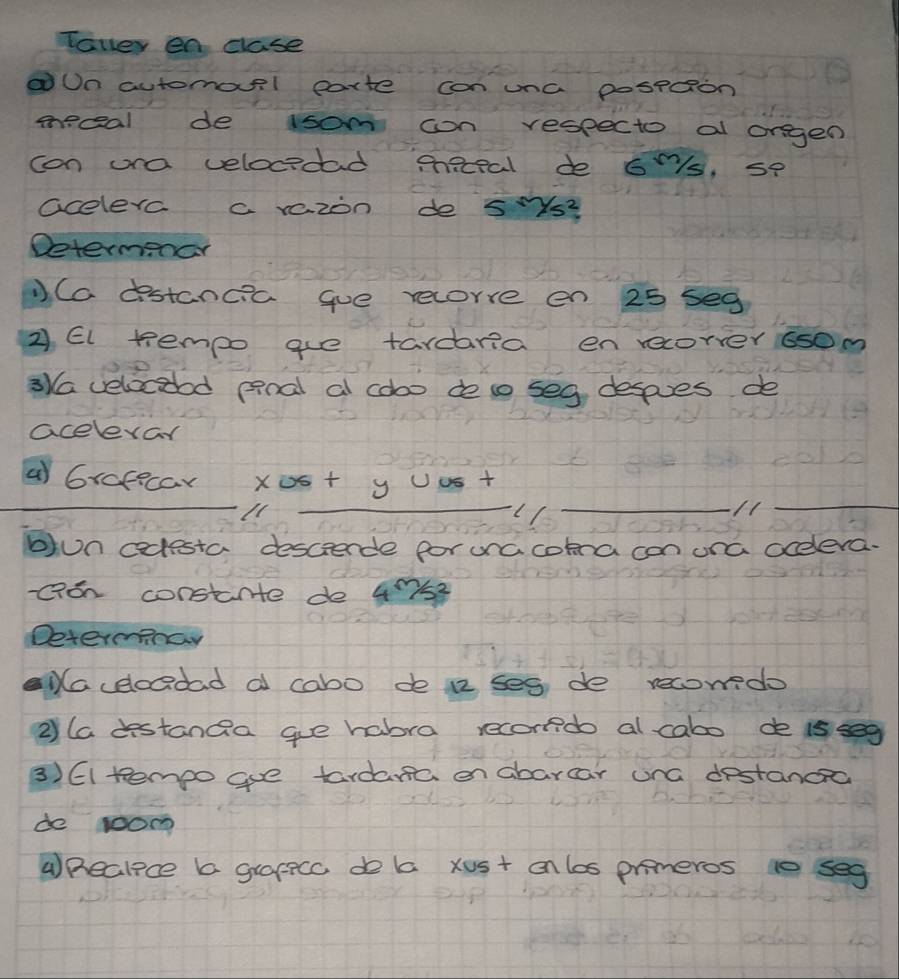 Taller en clase
a) Un automovil parte con una posición
inicial de 150m con respecto al origen
con una velocidad inicial de 6 m/s, si
acelera a razón de 5 m/s²
Determinar
1) La distancia que recorre en 25 seg
2) El tiempo que tardaria en recorrer 650m
3) La velocidad final al cabo de 10 seg despues de
acelerar
4) Graficar x vs t y v vs t
b) Un ciclista desciende por una colina con una acelera-
-ción constante de 4 m/s²
Determinar
1) La velocidad al cabo de 12 seg de recorrido
2) La distancia que habra recorrido al cabo de 15 seg
3) El tiempo que tardaria en abarcar una distancia
de 100m
4) Realice la grafica de la x vs t en los primeros 10 seg